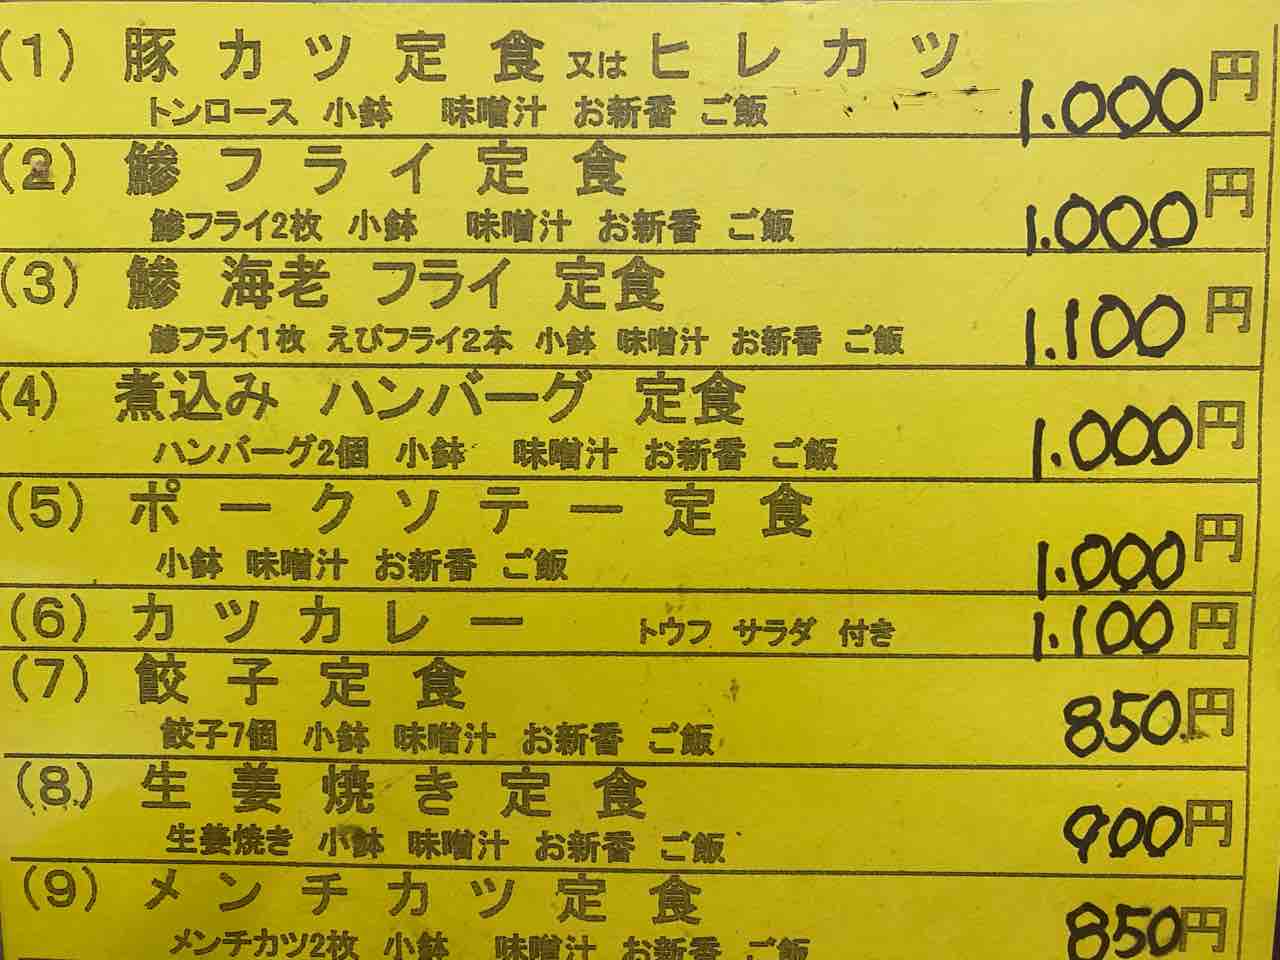 (1) 豚カツ定食 又は ヒレカツ 1.000円
トンロース 小鉢 味噌汁 お新香 ご飯
(2) 鯵フライ定食 1.000円
鯵フライ2枚 小鉢 味噌汁 お新香 ご飯
(3) 鯵 海老 フライ 定食 1.100円
鯵フライ1枚 えびフライ2本 小鉢 味噌汁 お新香 ご飯
(4) 煮込み ハンバーグ 定食 1.000円
ハンバーグ2個 小鉢 味噌汁 お新香 ご飯
(5) ポークソテー定食 1.000円
小鉢 味噌汁 お新香 ご飯
(6) カツカレー トウフ サラダ 付き 1.100円
(7) 餃子定食 850円
餃子7個 小鉢 味噌汁 お新香 ご飯
(8) 生姜焼き定食 900円
生姜焼き 小鉢 味噌汁 お新香 ご飯
(9) メンチカツ定食 850円
メンチカツ2枚 小鉢 味噌汁 お新香 ご飯